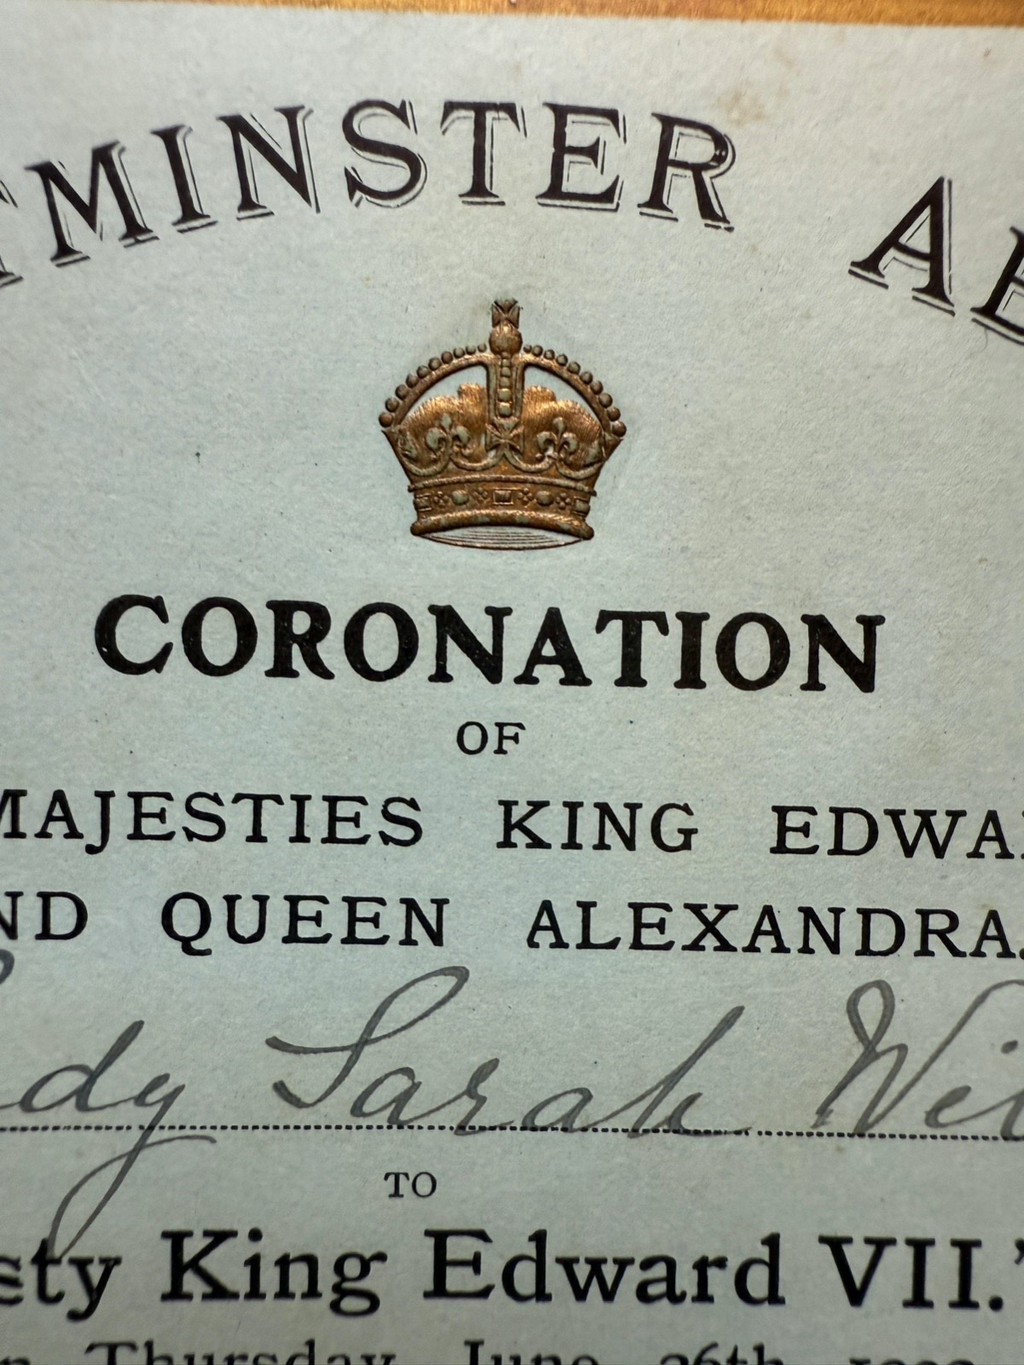 TMINSTER AB
CORONATION
OF
MAJESTIES KING EDWA
ND QUEEN ALEXANDRA.
ady Sarah Wil
TO
esty King Edward VII."
n Thursday, June 26th